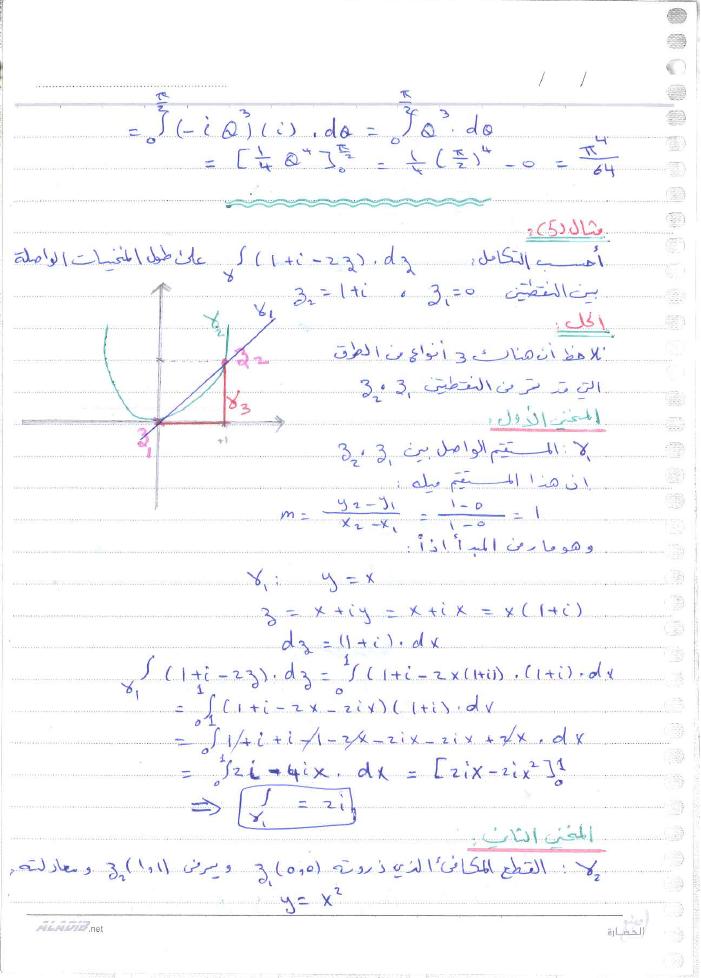 / /
= ₀∫^{π/2} (-i θ³)(i) . dθ = ₀∫^{π/2} θ³ . dθ
= [¼ θ⁴]₀^{π/2} = ¼ (π/2)⁴ - 0 = π⁴/64
مثال (5):
أحسب التكامل: ∫_γ (1+i-2z) . dz على طول المنحنيات الواصلة
بين النقطتين z₁=0 ، z₂=1+i
الحل:
نلاحظ أن هناك 3 أنواع من الطرق
التي قد تمر من النقطتين z₁ ، z₂
γ₂ γ₁
z₂
γ₃
z₁ +1
المنحني الأول:
γ₁: المستقيم الواصل بين z₁ ، z₂
ان هذا المستقيم ميله:
m = (y₂-y₁)/(x₂-x₁) = (1-0)/(1-0) = 1
وهو مار من المبدأ اذاً:
γ₁: y = x
z = x+iy = x+ix = x(1+i)
dz = (1+i) . dx
∫_γ₁ (1+i-2z) . dz = ₀∫¹ (1+i-2x(1+i)) . (1+i) . dx
= ₀∫¹ (1+i-2x-2ix)(1+i) . dx
= ₀∫¹ 1+i+i-1-2x-2ix-2ix+2x . dx
= ₀∫¹ 2i-4ix . dx = [2ix-2ix²]₀¹
⇒ ∫_γ₁ = 2i-2i
المنحني الثاني:
γ₂: القطع المكافئ الذي ذروته z₁(0,0) ويمر من z₂(1,1) ومعادلته
y = x²
ALADIB.net
الحضارة